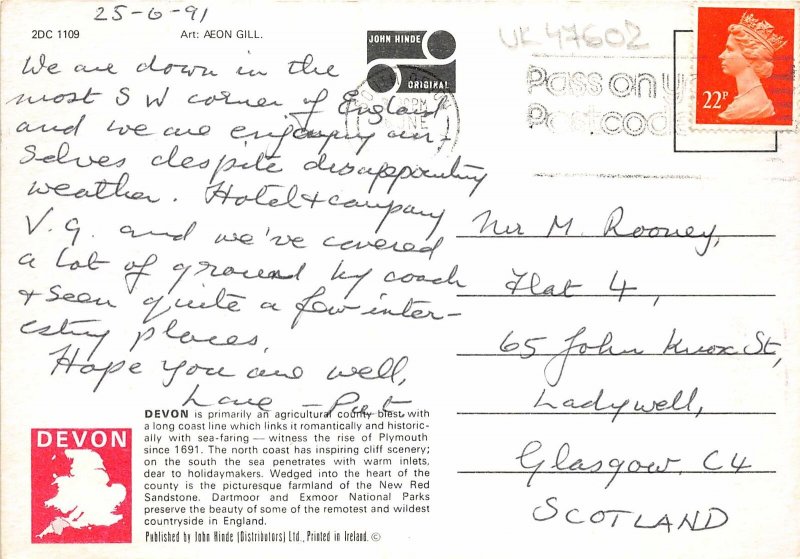 25-6-91
2DC 1109
Art: AEON GILL.
JOHN HINDE
ORIGINAL
UK47602
Pass on y
Postcod
22P
We are down in the
most S W corner of England
and we are enjoying our-
selves despite disappointing
weather. Hotel + company
V.g. and we've covered
a lot of ground by coach
+ seen quite a few inter-
esting places.
Hope you are well,
Love - Pat
M. Rooney,
Flat 4,
65 John Knox St,
Ladywell,
Glasgow. C4
SCOTLAND
DEVON
DEVON is primarily an agricultural county blest with
a long coast line which links it romantically and historic-
ally with sea-faring — witness the rise of Plymouth
since 1691. The north coast has inspiring cliff scenery;
on the south the sea penetrates with warm inlets,
dear to holidaymakers. Wedged into the heart of the
county is the picturesque farmland of the New Red
Sandstone. Dartmoor and Exmoor National Parks
preserve the beauty of some of the remotest and wildest
countryside in England.
Published by John Hinde (Distributors) Ltd., Printed in Ireland. ©